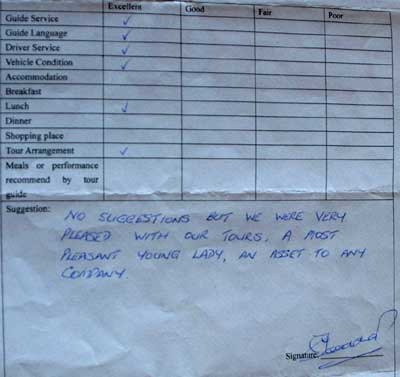 Excellent Good Fair Poor
Guide Service ✓
Guide Language ✓
Driver Service ✓
Vehicle Condition ✓
Accommodation
Breakfast
Lunch ✓
Dinner
Shopping place
Tour Arrangement ✓
Meals or performance
recommend by tour
guide
Suggestion:
NO SUGGESTIONS BUT WE WERE VERY
PLEASED WITH OUR TOURS, A MOST
PLEASANT YOUNG LADY, AN ASSET TO ANY
COMPANY.
Signature: